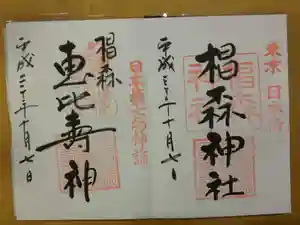 東京 日本橋
椙森神社
平成三十年十月七日
日本橋七福神詣
椙森
恵比寿神
平成三十年十月七日